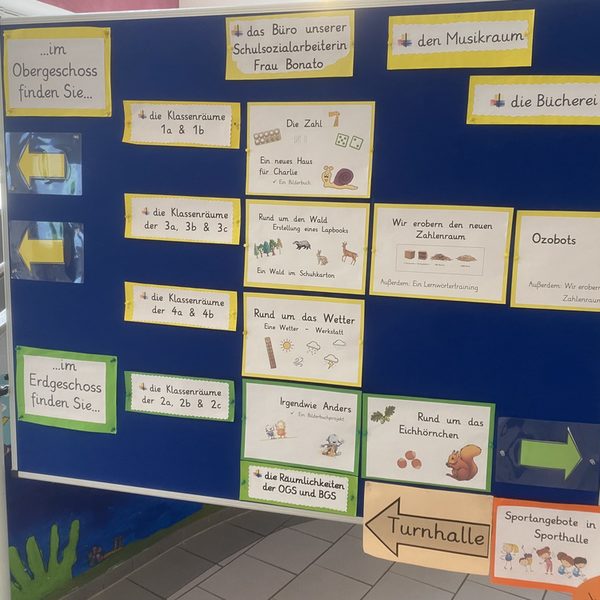 ...im
Obergeschoss
finden Sie...
das Büro unserer
Schulsozialarbeiterin
Frau Bonato
den Musikraum
die Bücherei
die Klassenräume
1a & 1b
Die Zahl 7
Ein neues Haus
für Charlie
✓ Ein Bilderbuch
die Klassenräume
der 3a, 3b & 3c
Rund um den Wald
Erstellung eines Lapbooks
Ein Wald im Schuhkarton
Wir erobern den neuen
Zahlenraum
Außerdem: Ein Lernwörtertraining
Ozobots
Außerdem: Wir erobern
Zahlenraum
die Klassenräume
der 4a & 4b
Rund um das Wetter
Eine Wetter - Werkstatt
...im
Erdgeschoss
finden Sie...
die Klassenräume
der 2a, 2b & 2c
Irgendwie Anders
✓ Ein Bilderbuchprojekt
Rund um das
Eichhörnchen
die Räumlichkeiten
der OGS und BGS
Turnhalle
Sportangebote in
Sporthalle